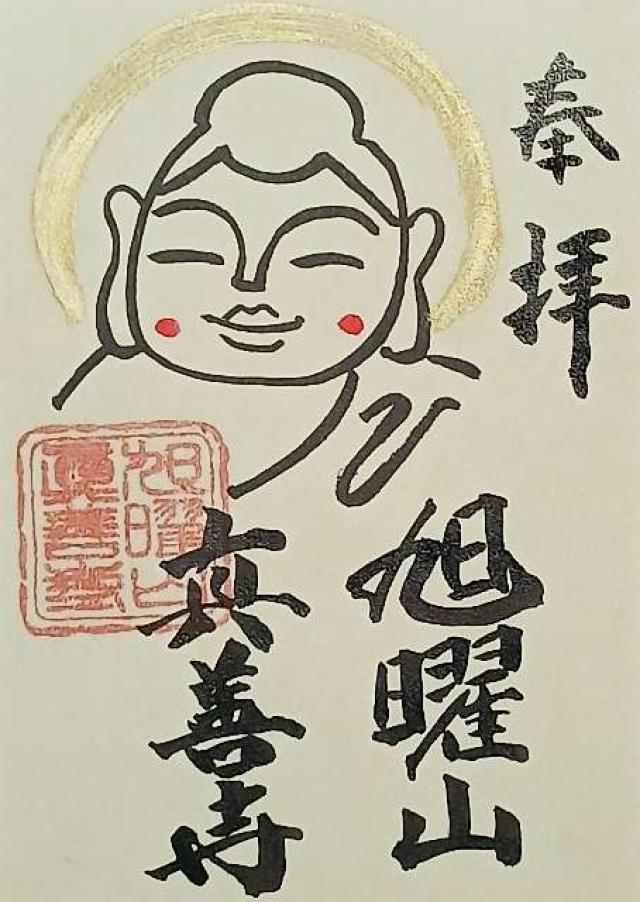 奉拝
旭曜山
真善寺
旭曜山
真善寺